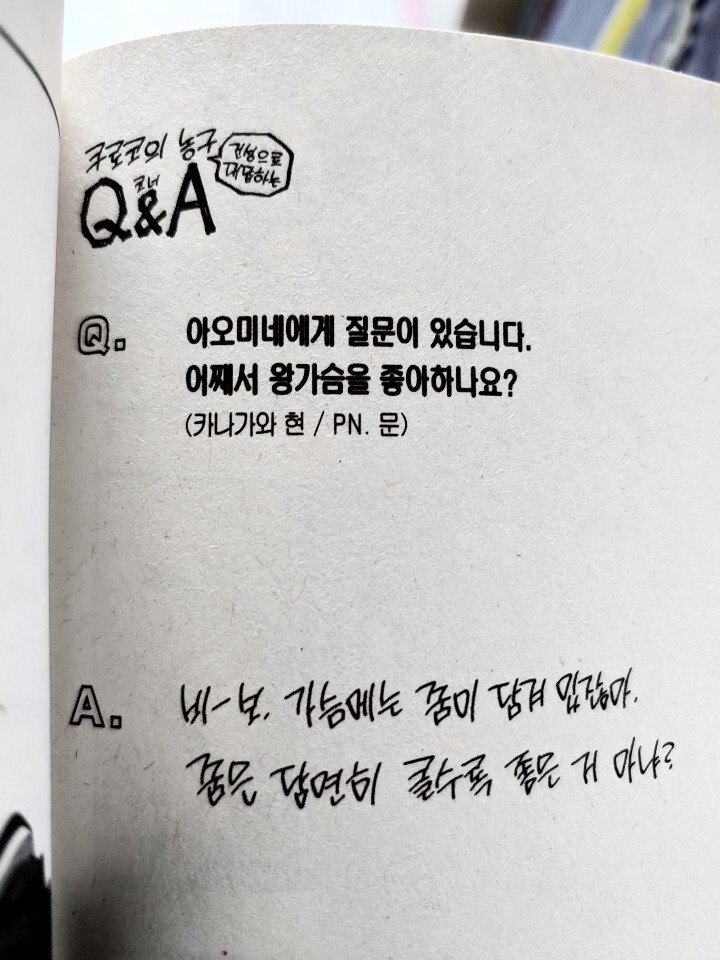 쿠로코의 농구
건성으로
대답하는
코너
Q&A
Q.
아오미네에게 질문이 있습니다.
어째서 왕가슴을 좋아하나요?
(카나가와 현 / PN. 문)
A.
바-보. 가슴에는 꿈이 담겨 있잖아.
꿈은 당연히 클수록 좋은 거 아냐?